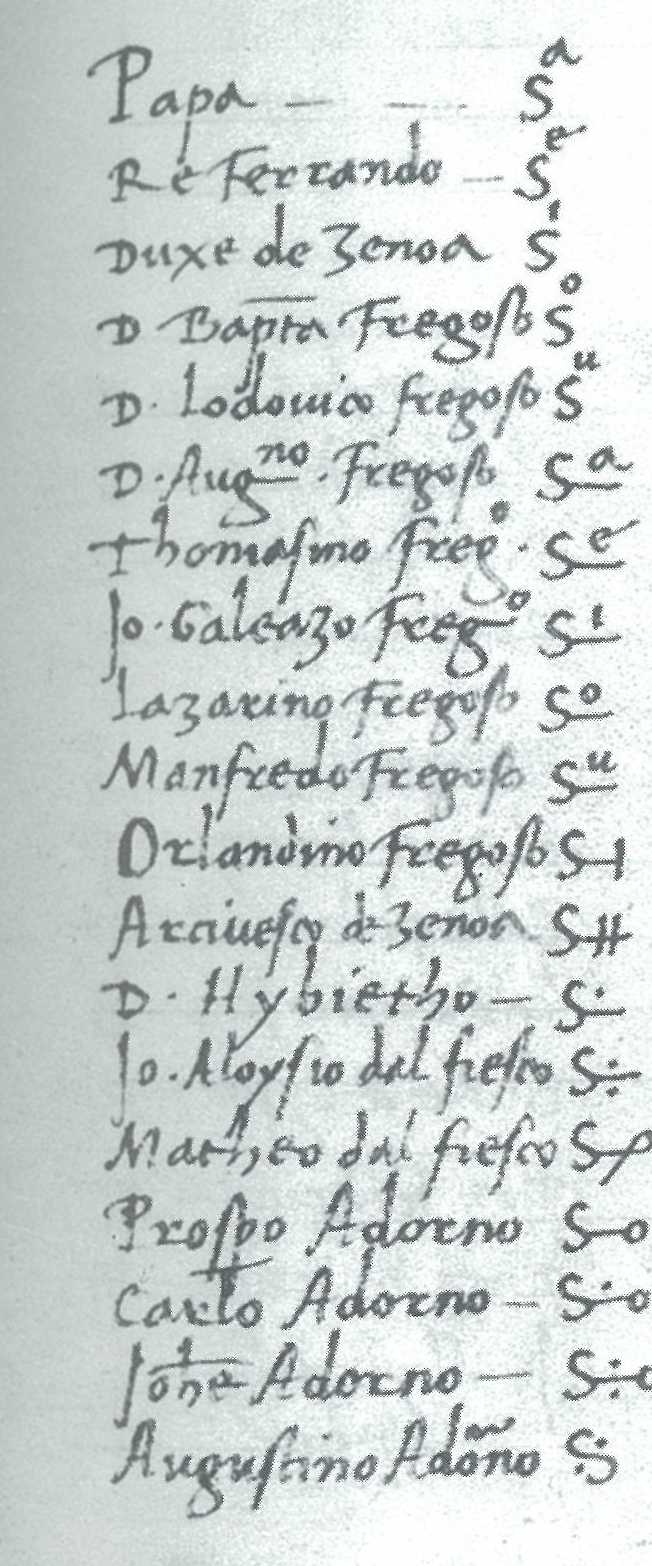 Papa — — Sᵃ
Re Ferrando — Sᵉ
Duxe de Zenoa Sⁱ
D Bapta Fregoso Sᵒ
D. Lodouico fregoso Sᵘ
D. Augⁿᵒ. Fregoso S–ᵃ
Thomasino Fregᵒ. S–ᵉ
Jo. Galeazo Fregᵒ S–ⁱ
Lazarino Fregoso S–ᵒ
Manfredo Fregoso S–ᵘ
Orlandino Fregoso S
Arciuesco de Zenoa S
D. Hybietho — S
Jo. Aloysio dal fiesco S
Matheo dal fiesco S
Prospo Adorno S–o
Carlo Adorno — S–o
Johne Adorno — S
Augustino Adoño S